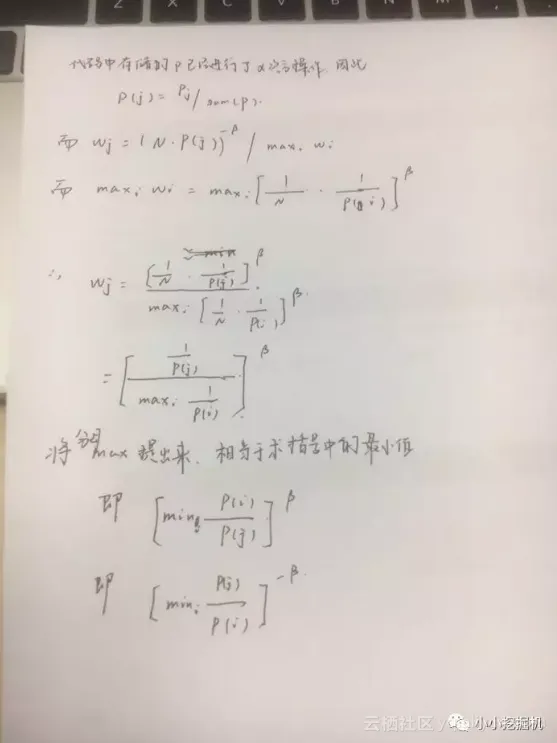 代码中存储的 P 已经进行了 α 次方操作. 因此
P(j) = Pj / sum(P).
而 wj = (N · P(j))^-β / max_i wi
而 max_i wi = max_i [ 1/N · 1/P(i) ]^β
∴ wj = [ 1/N · 1/P(j) ]^β / max_i [ 1/N · 1/P(i) ]^β.
= [ 1/P(j) / max_i 1/P(i) ]^β
将分母 max 提出来. 相当于求括号中的最小值
即 [ min_i P(i)/P(j) ]^β
即 [ min_i P(j)/P(i) ]^-β.
云栖社区 y
小小挖掘机